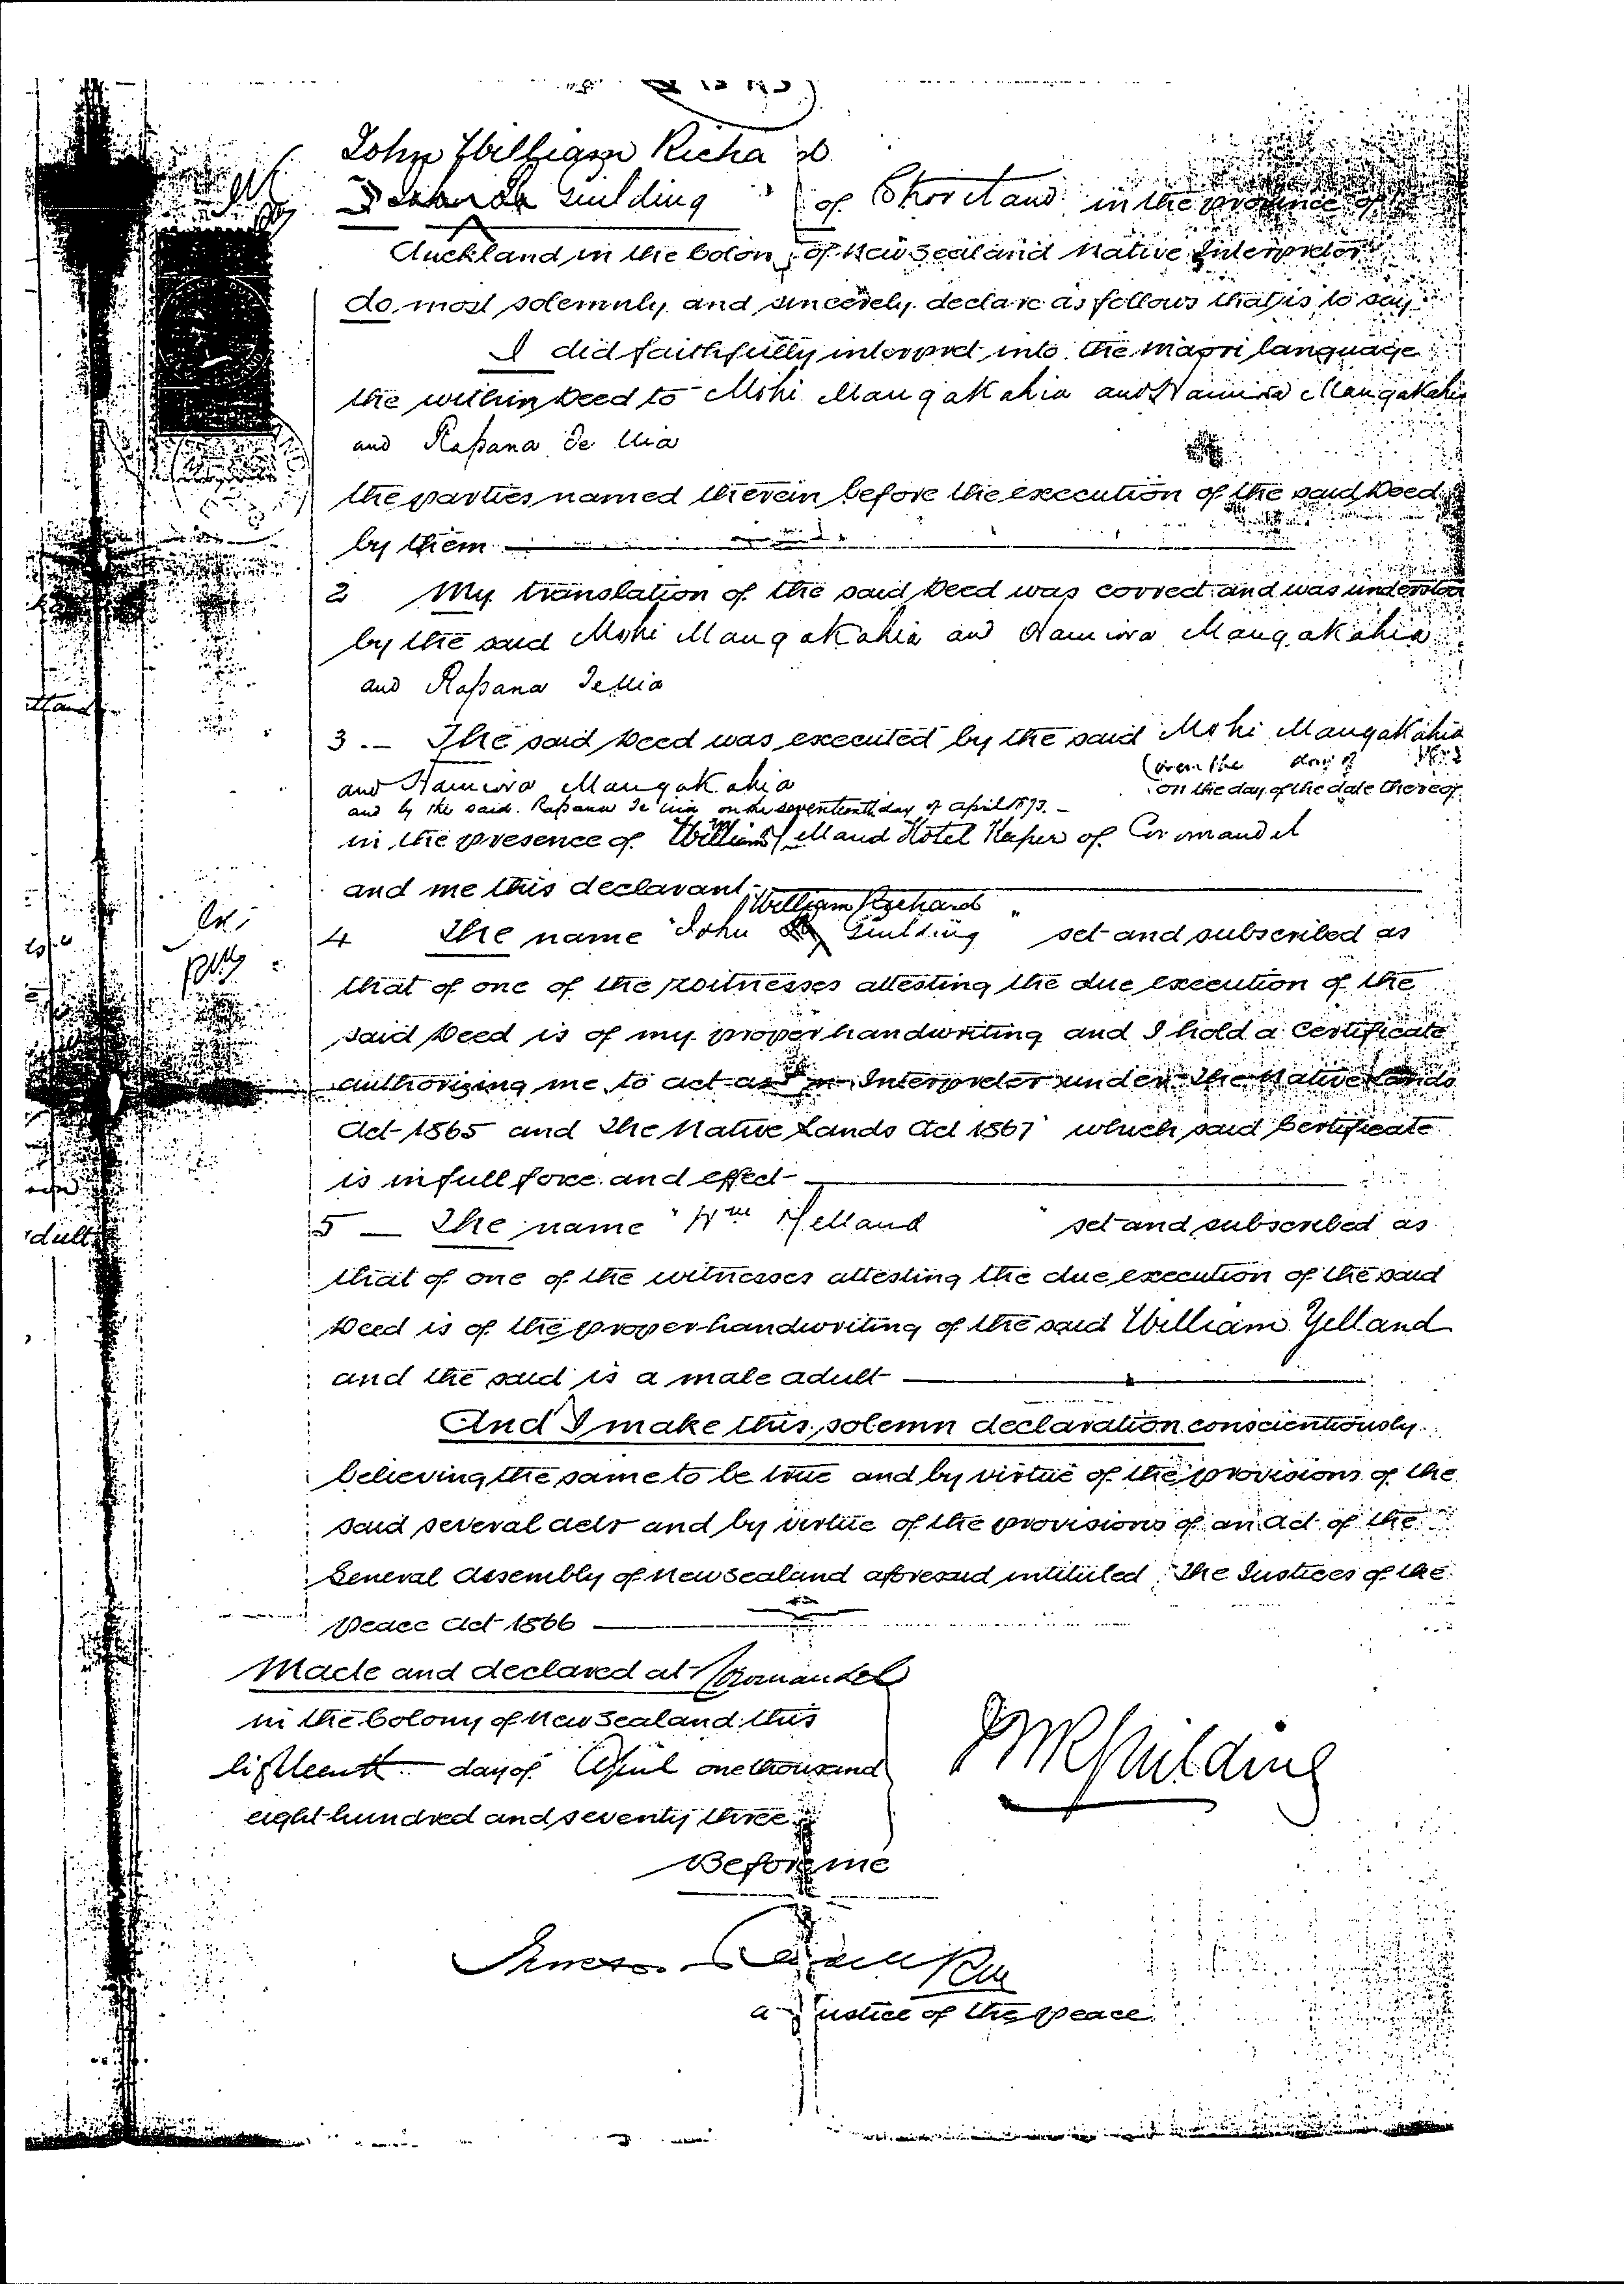 John William Richard
Guilding of Shortland in the province of
Auckland in the Colony of New Zealand Native Interpreter
do most solemnly and sincerely declare as follows that is to say
I did faithfully interpret into the Maori language
the within Deed to Mohi Mangakahia and Hamiora Mangakahia
and Rapana Te Uia
the parties named therein before the execution of the said Deed
by them
2 My translation of the said Deed was correct and was understood
by the said Mohi Mangakahia and Hamiora Mangakahia
and Rapana Te Uia
3 The said Deed was executed by the said Mohi Mangakahia
and Hamiora Mangakahia on the day of the date thereof
and by the said Rapana Te Uia on the seventeenth day of April 1873.
in the presence of William Yelland Hotel Keeper of Coromandel
and me this declarant
William Richard
4 The name "John Guilding" set and subscribed as
that of one of the witnesses attesting the due execution of the
said Deed is of my proper handwriting and I hold a Certificate
authorizing me to act as an Interpreter under The Native Lands
Act 1865 and The Native Lands Act 1867 which said Certificate
is in full force and effect
5 The name "Wm Yelland" set and subscribed as
that of one of the witnesses attesting the due execution of the said
Deed is of the proper handwriting of the said William Yelland
and the said is a male adult
And I make this solemn declaration conscientiously
believing the same to be true and by virtue of the provisions of the
said several acts and by virtue of the provisions of an Act of the
General Assembly of New Zealand aforesaid intituled The Justices of the
Peace Act 1866
Made and declared at Coromandel
in the Colony of New Zealand this
eighteenth day of April one thousand
eight hundred and seventy three
JWR Guilding
Before me
a Justice of the Peace